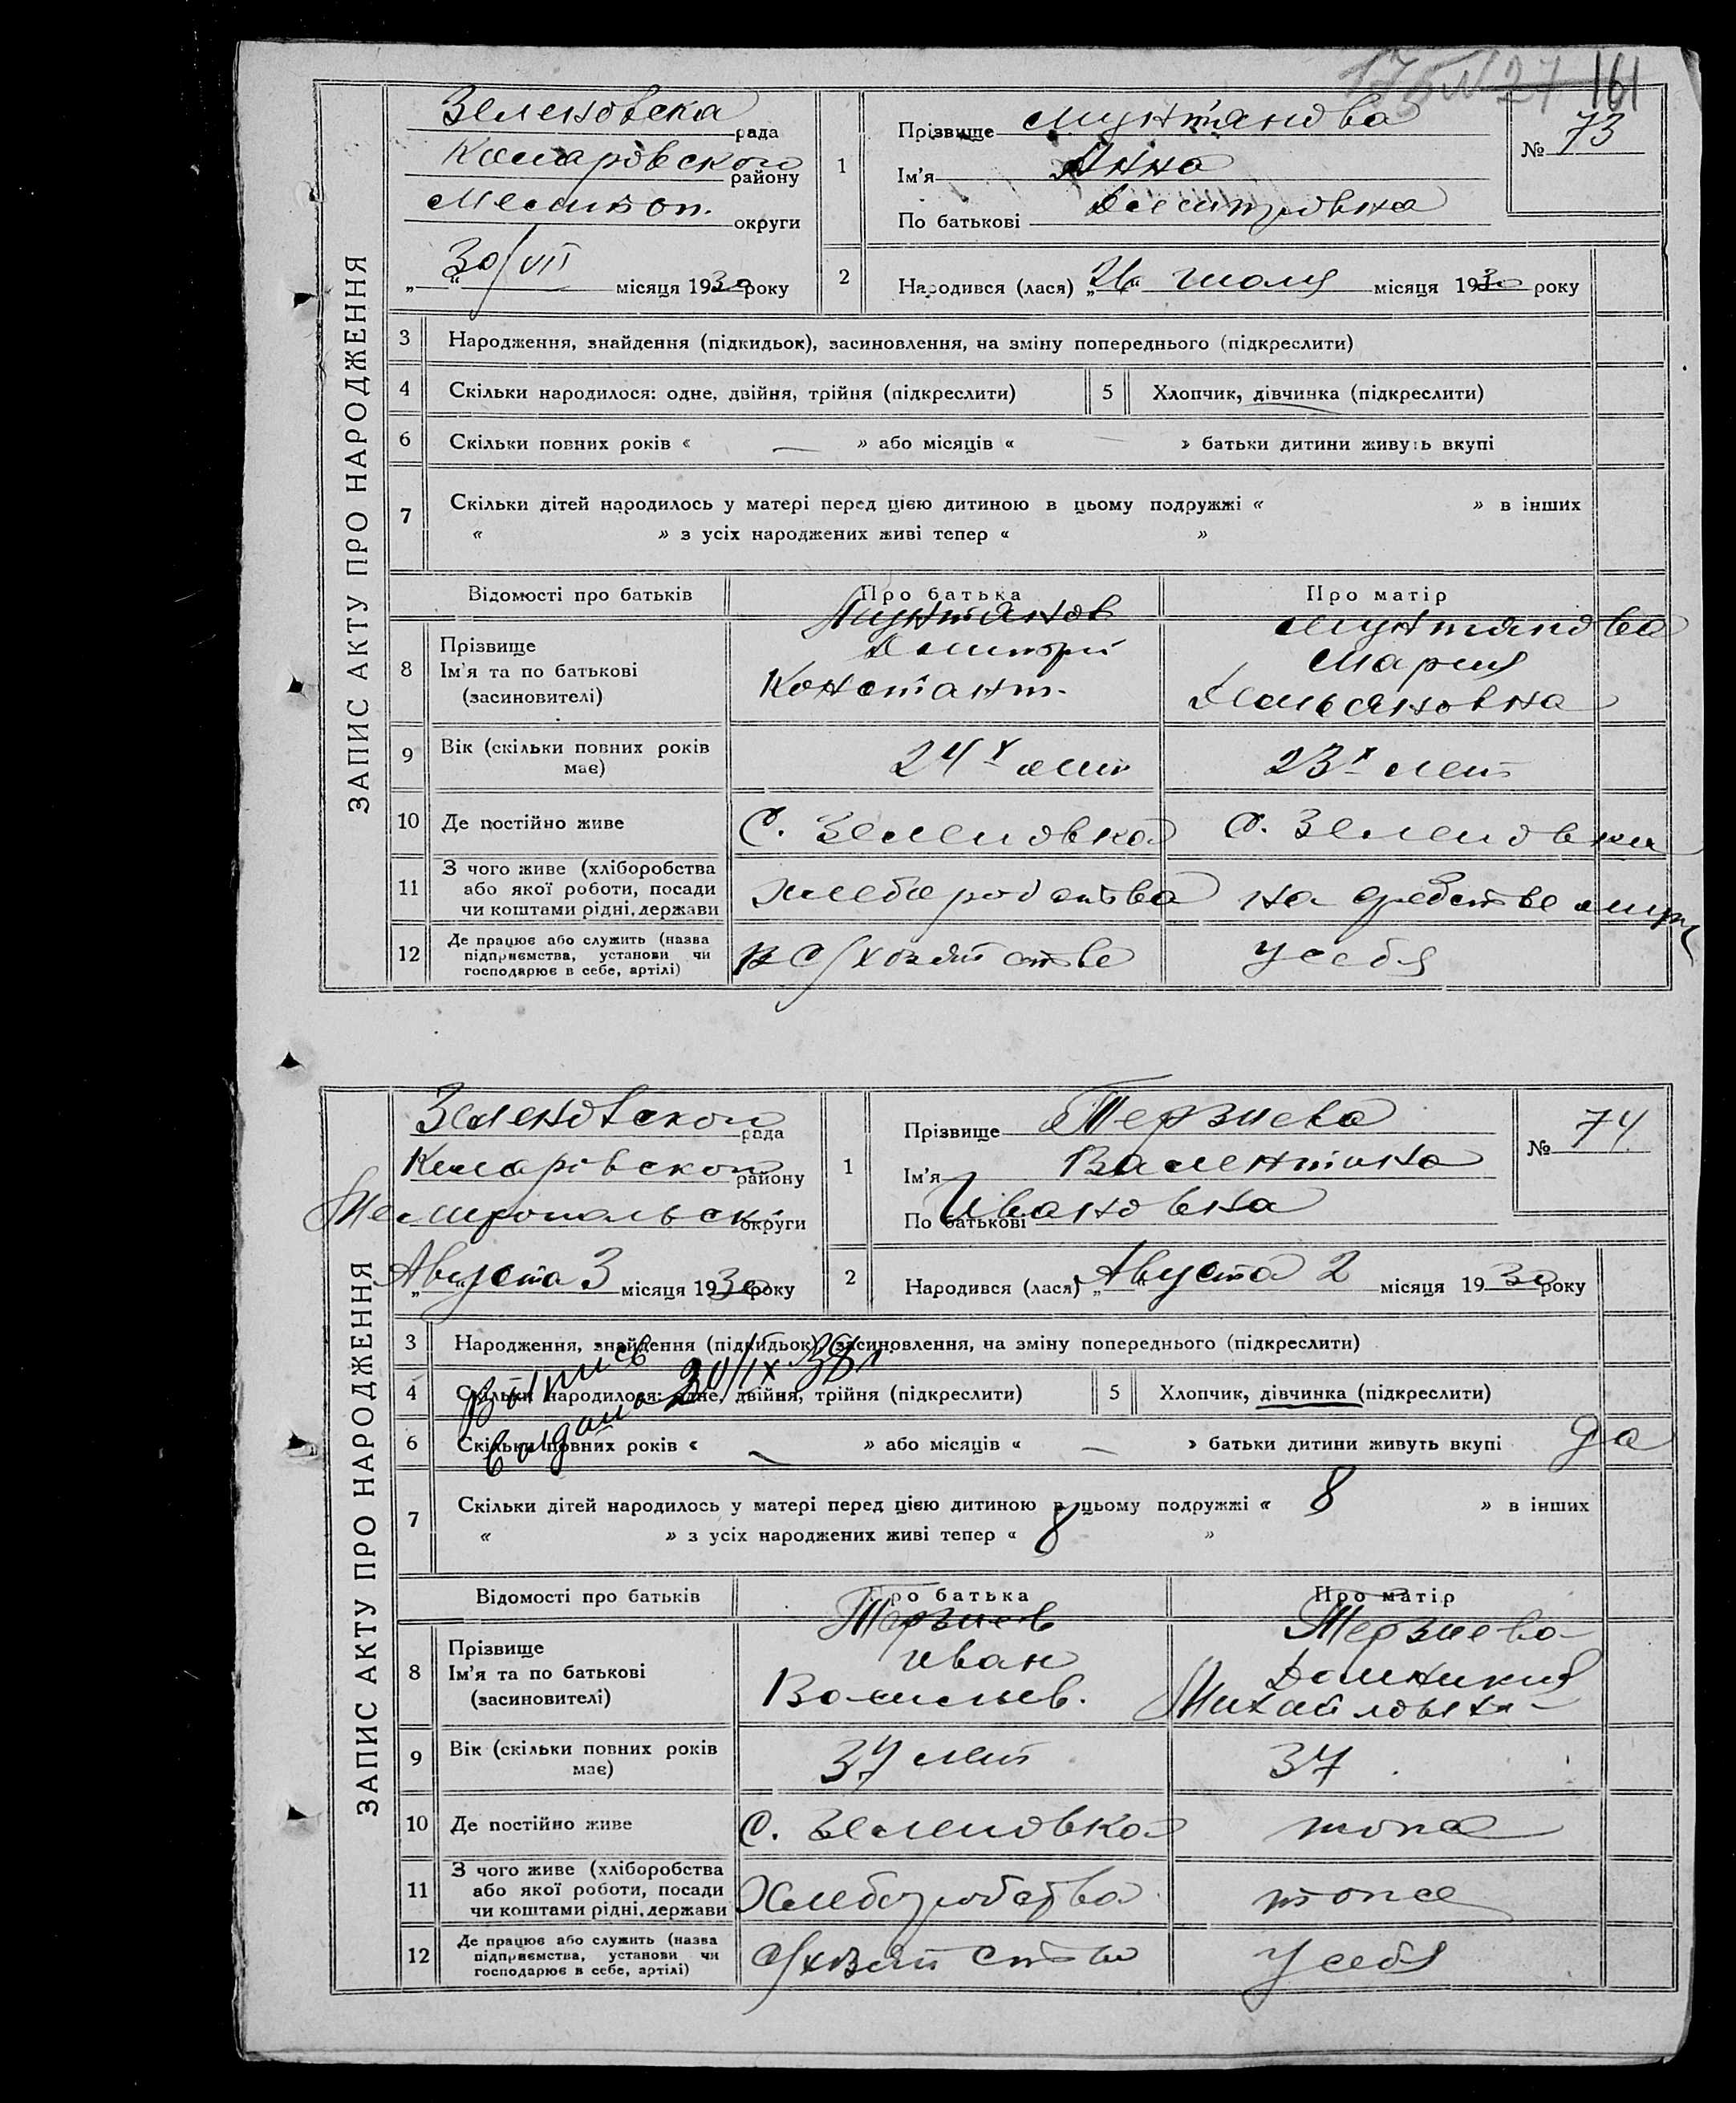 175 N 27 161
ЗАПИС АКТУ ПРО НАРОДЖЕННЯ
Зеленовска рада
Комаровского району
Мелитоп. округи
„30/VII“ місяця 1930 року
1
Прізвище Мунтянова
Ім'я Анна
По батькові Дмитровна
№ 73
2 Народився (лася) „26“ июля місяця 1930 року
3 Народження, знайдення (підкидьок), засиновлення, на зміну попереднього (підкреслити)
4 Скільки народилося: одне, двійня, трійня (підкреслити) 5 Хлопчик, дівчинка (підкреслити)
6 Скільки повних років « — » або місяців « — » батьки дитини живуть вкупі
7 Скільки дітей народилось у матері перед цією дитиною в цьому подружжі « » в інших
« » з усіх народжених живі тепер « »
Відомості про батьків Про батька Про матір
8 Прізвище
Ім'я та по батькові
(засиновителі)
Мунтянов
Дмитрий
Констант.
Мунтянова
Мария
9 Вік (скільки повних років
має)
24х лет 23х лет
10 Де постійно живе С. Зеленовка С. Зеленовка
11 З чого живе (хліборобства
або якої роботи, посади
чи коштами рідні, держави
хлеборобства на средстве мужа
12 Де працює або служить (назва
підприємства, установи чи
господарює в себе, артілі)
в с/хозяйстве у себя
ЗАПИС АКТУ ПРО НАРОДЖЕННЯ
Зеленовского рада
Комаровского району
округи
„Августа 3 місяця 1930 року
1
Прізвище Терзиева
Ім'я Валентина
По батькові Ивановна
№ 74
2 Народився (лася) „Августа 2 місяця 1930 року
3 Народження, знайдення (підкидьок), засиновлення, на зміну попереднього (підкреслити)
4 Скільки народилося: одне, двійня, трійня (підкреслити) 5 Хлопчик, дівчинка (підкреслити)
видана 20/IX 38
6 Скільки повних років « — » або місяців « — » батьки дитини живуть вкупі да
7 Скільки дітей народилось у матері перед цією дитиною в цьому подружжі « 8 » в інших
« » з усіх народжених живі тепер « 8 »
Відомості про батьків Про батька Про матір
8 Прізвище
Ім'я та по батькові
(засиновителі)
Терзиев
Иван
Васильев.
Терзиева
Домникия
Михайловна
9 Вік (скільки повних років
має)
37 лет 37
10 Де постійно живе С. Зеленовка тоже
11 З чого живе (хліборобства
або якої роботи, посади
чи коштами рідні, держави
Хлеборобства тоже
12 Де працює або служить (назва
підприємства, установи чи
господарює в себе, артілі)
С/хозяйство У себя